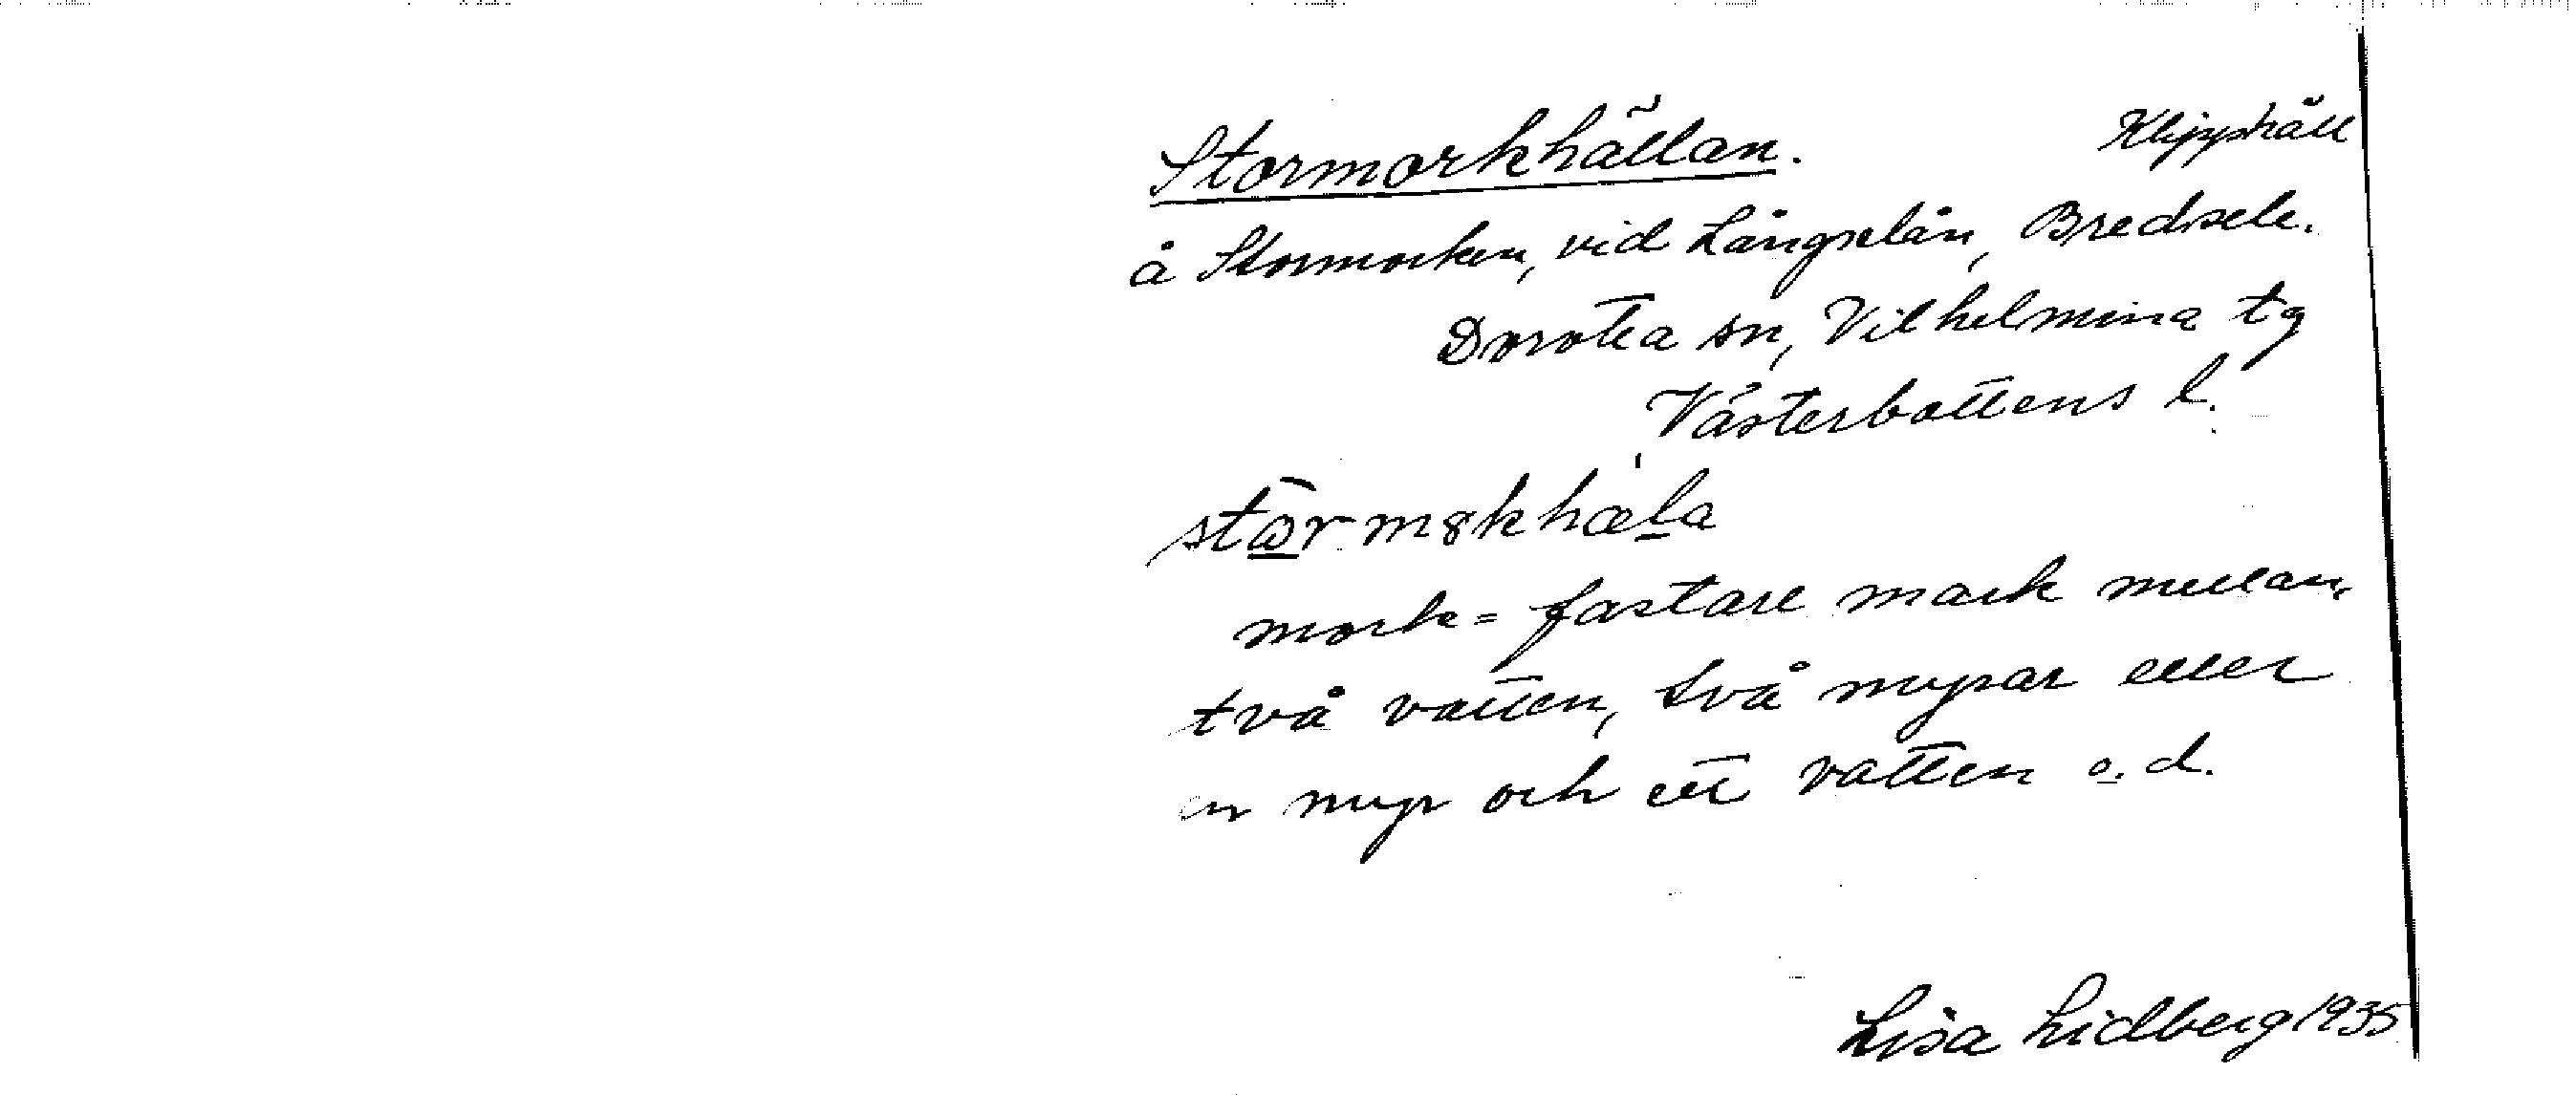 Stormorkhällan. Klipphäll
å Stormorken, vid Långselån, Bredsele.
Dorotea sn, Vilhelmina tg
Västerbottens l.
mork = fastare mark mellan
två vatten, två myrar eller
en myr och ett vatten o.d.
Lisa Lidberg 1935